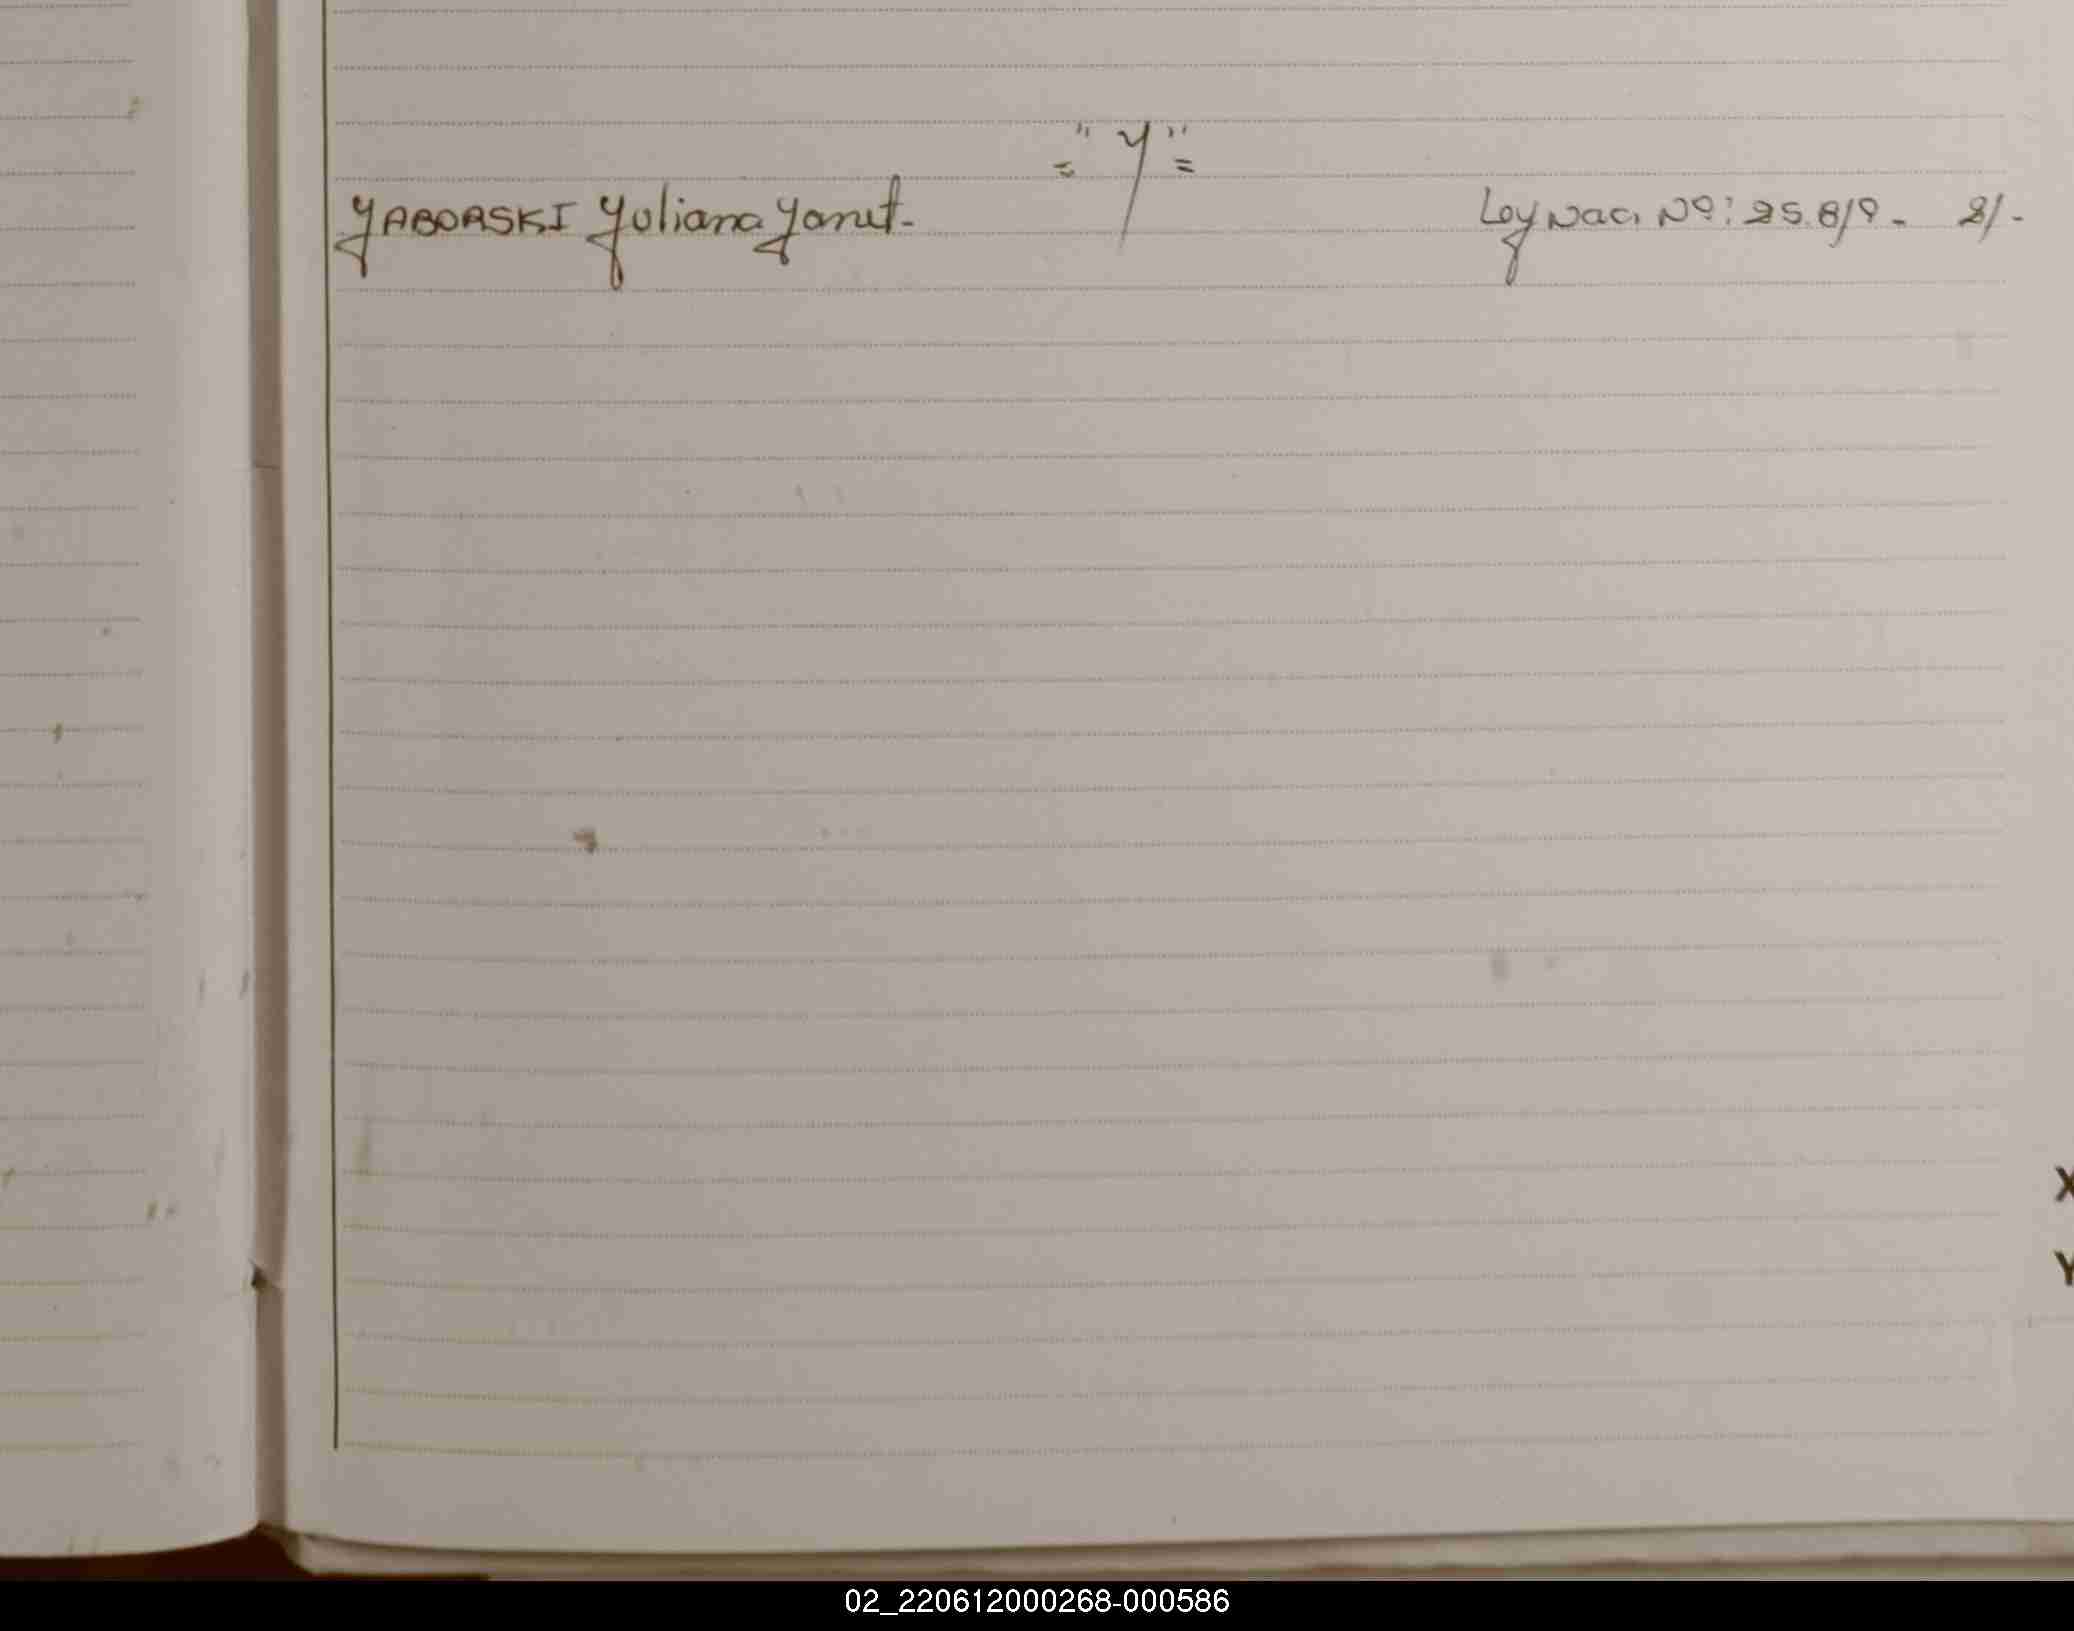 ="Y"=
YABORSKI Yuliana Yanet.- Ley Nac. Nº: 25.819.- 2/-
X
Y
02_220612000268-000586